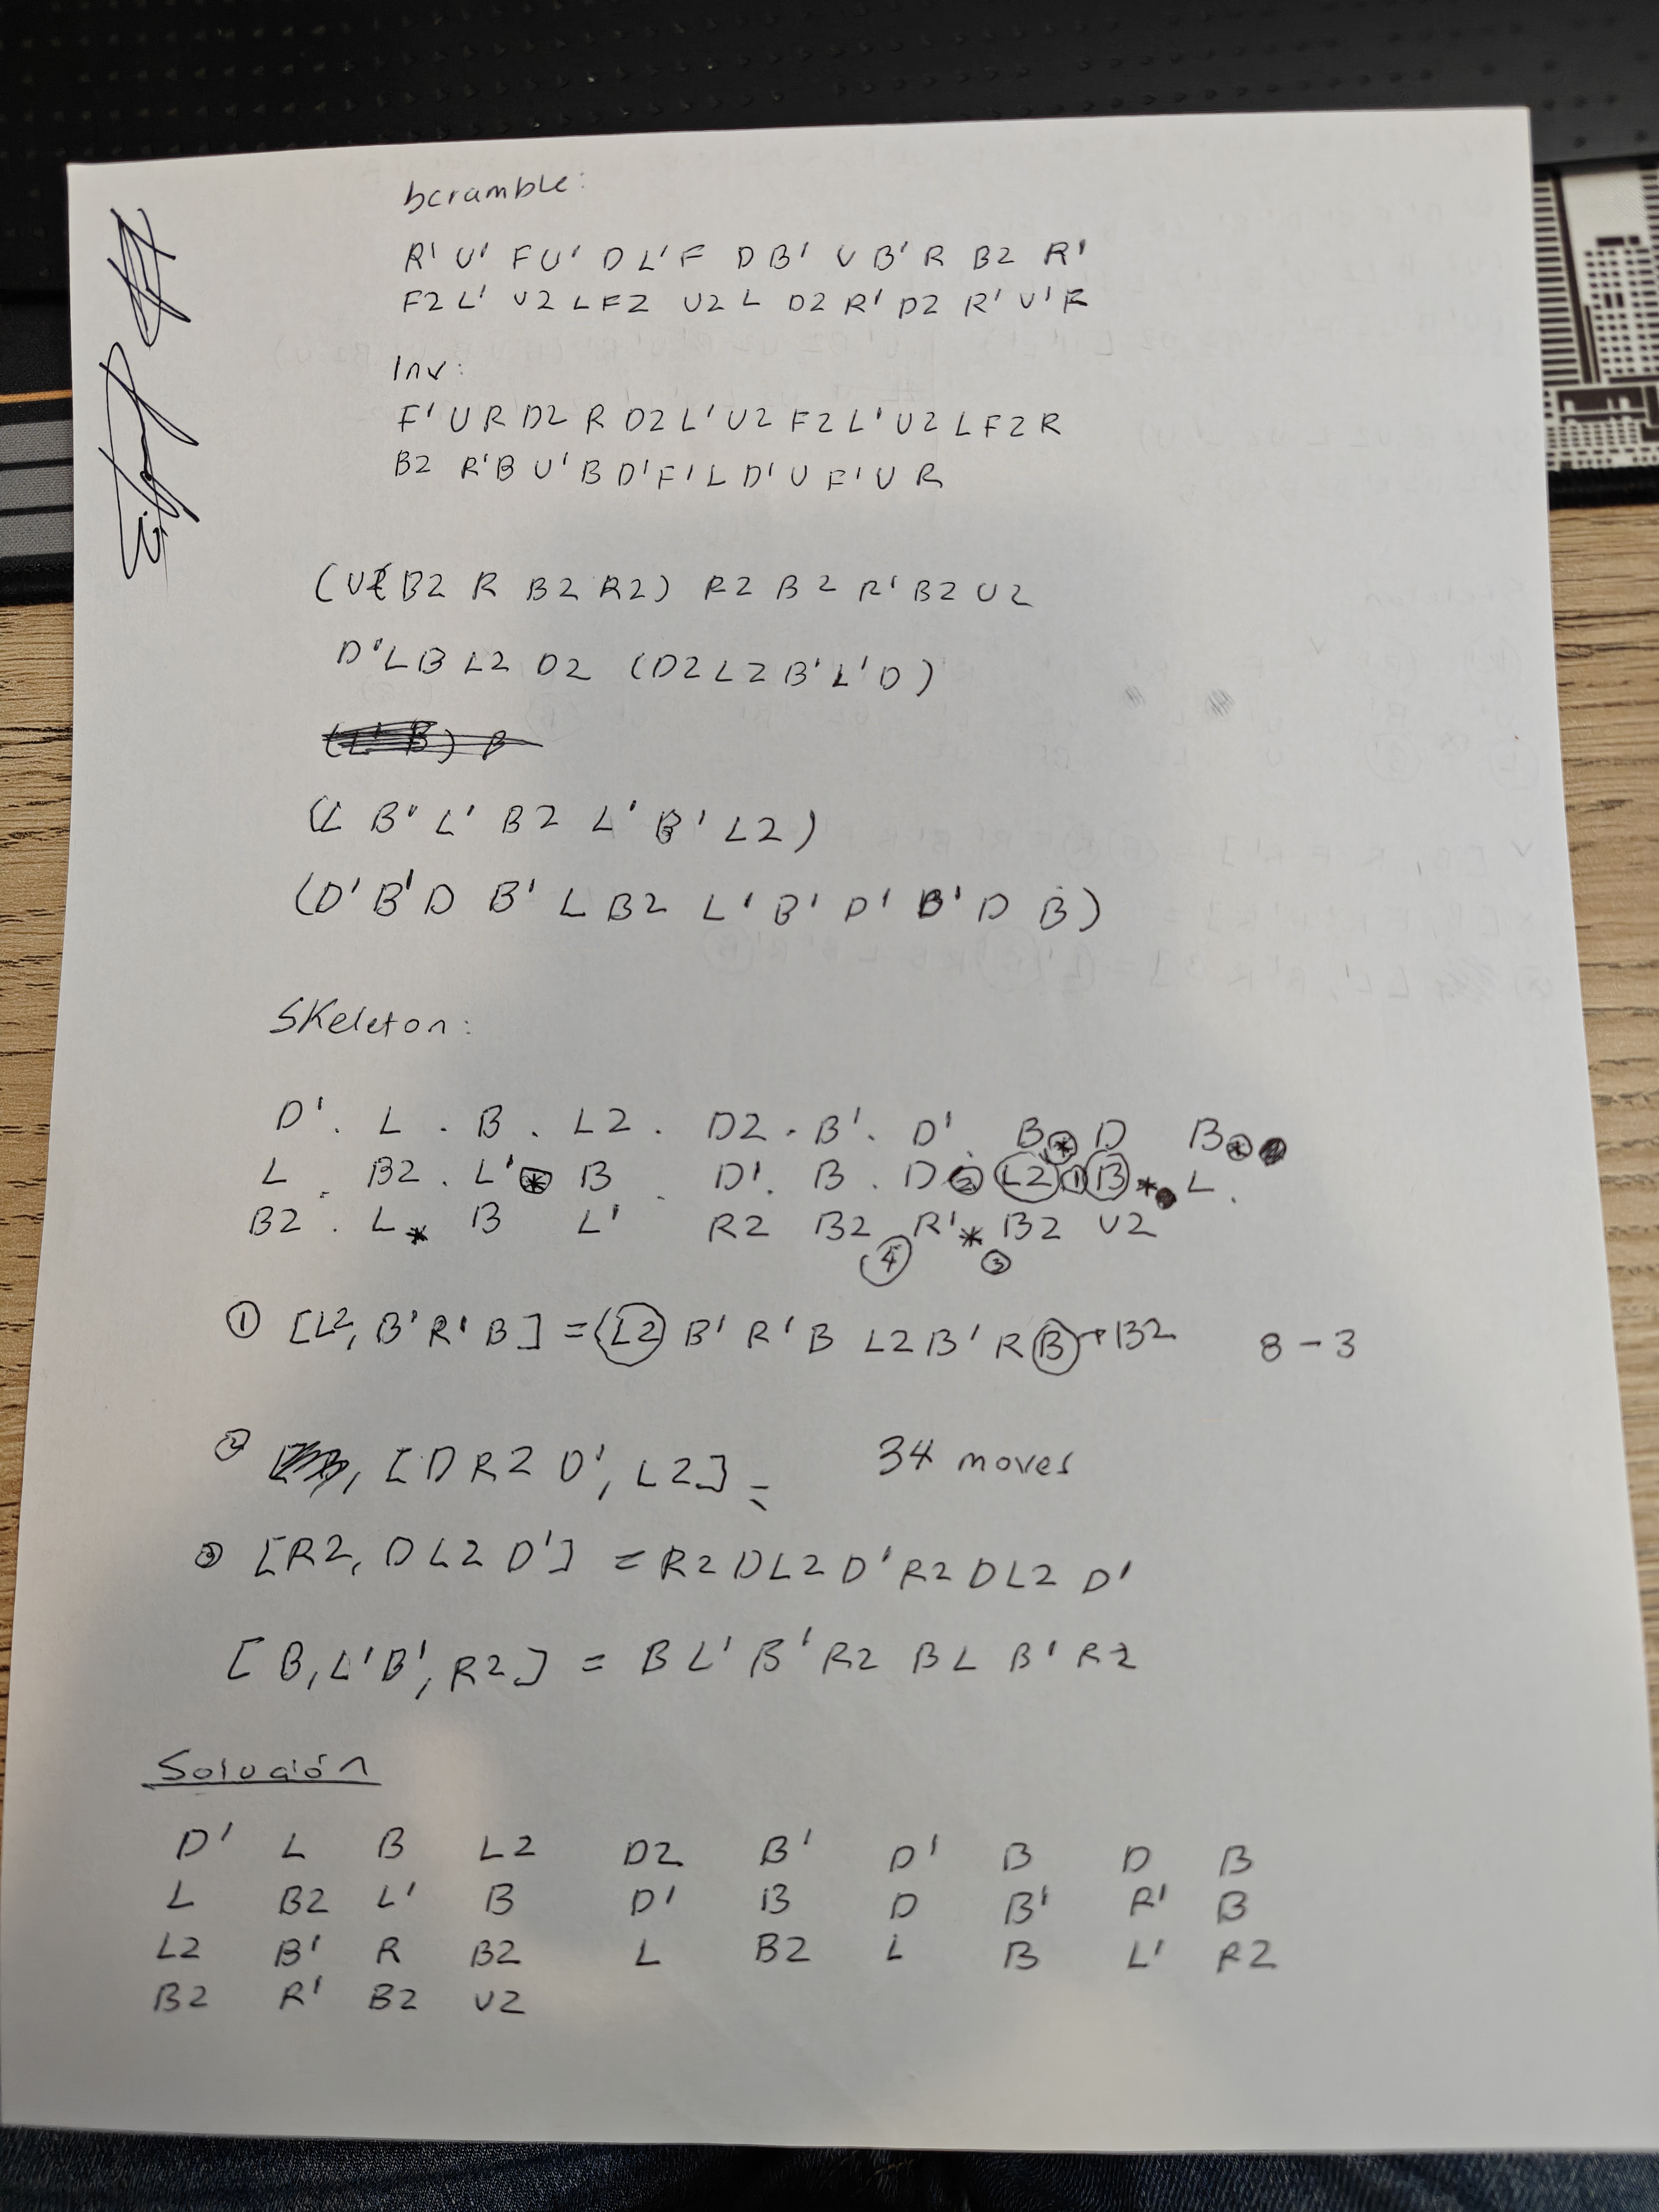 Scramble:
R' U' F U' D L' F D B' U B' R B2 R'
F2 L' U2 L F2 U2 L D2 R' D2 R' U' F
Inv:
F' U R D2 R D2 L' U2 F2 L' U2 L F2 R
B2 R' B U' B D' F' L D' U F' U R
(U2 B2 R B2 R2) R2 B2 R' B2 U2
D' L B L2 D2 (D2 L2 B' L' D)
(L B' L' B2 L' B' L2)
(D' B' D B' L B2 L' B' D' B' D B)
Skeleton:
D' . L . B . L2 . D2 . B' . D' B * D B *
L . B2 . L' * B . D' . B . D 2 L2 1 B * L .
B2 . L * B L' R2 B2 R' * B2 U2
4 3
1 [L2, B' R' B] = (L2 B' R' B L2 B' R B → B2 8 - 3
2 , [D R2 D', L2] = 34 moves
3 [R2, D L2 D'] = R2 D L2 D' R2 D L2 D'
[B, L' B', R2] = B L' B' R2 B L B' R2
Solución
D' L B L2 D2 B' D' B D B
L B2 L' B D' B D B' R' B
L2 B' R B2 L B2 L B L' R2
B2 R' B2 U2